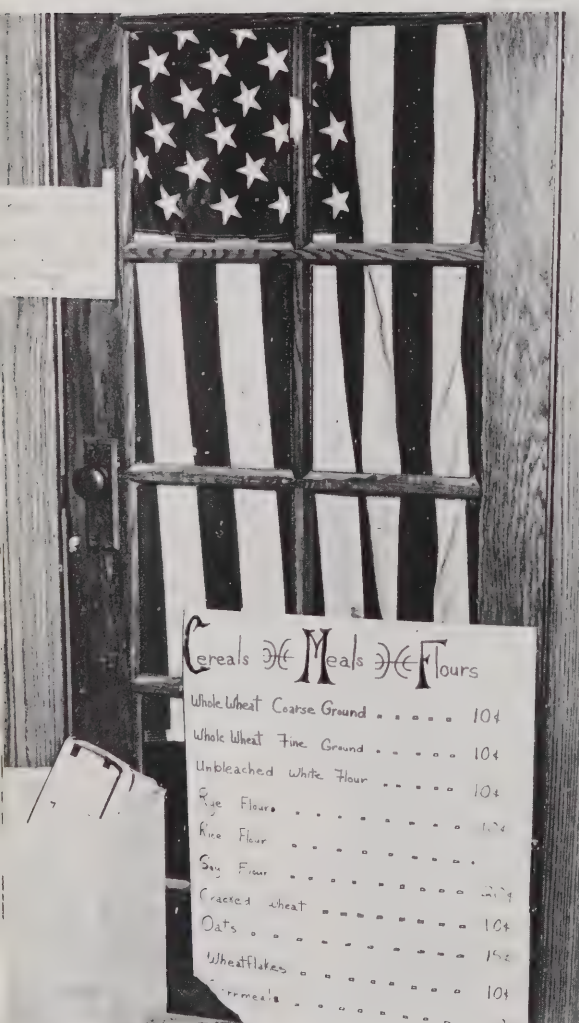 Cereals Meals Flours
Whole Wheat Coarse Ground . . . . . 10¢
Whole Wheat Fine Ground . . . . . 10¢
Unbleached White Flour . . . . . 10¢
Rye Flour . . . . . . . .
Rice Flour . . . . . . . .
Soy Flour . . . . . . . .
Cracked Wheat . . . . . . . 10¢
Oats . . . . . . . . . 15¢
Wheatflakes . . . . . . . 10¢